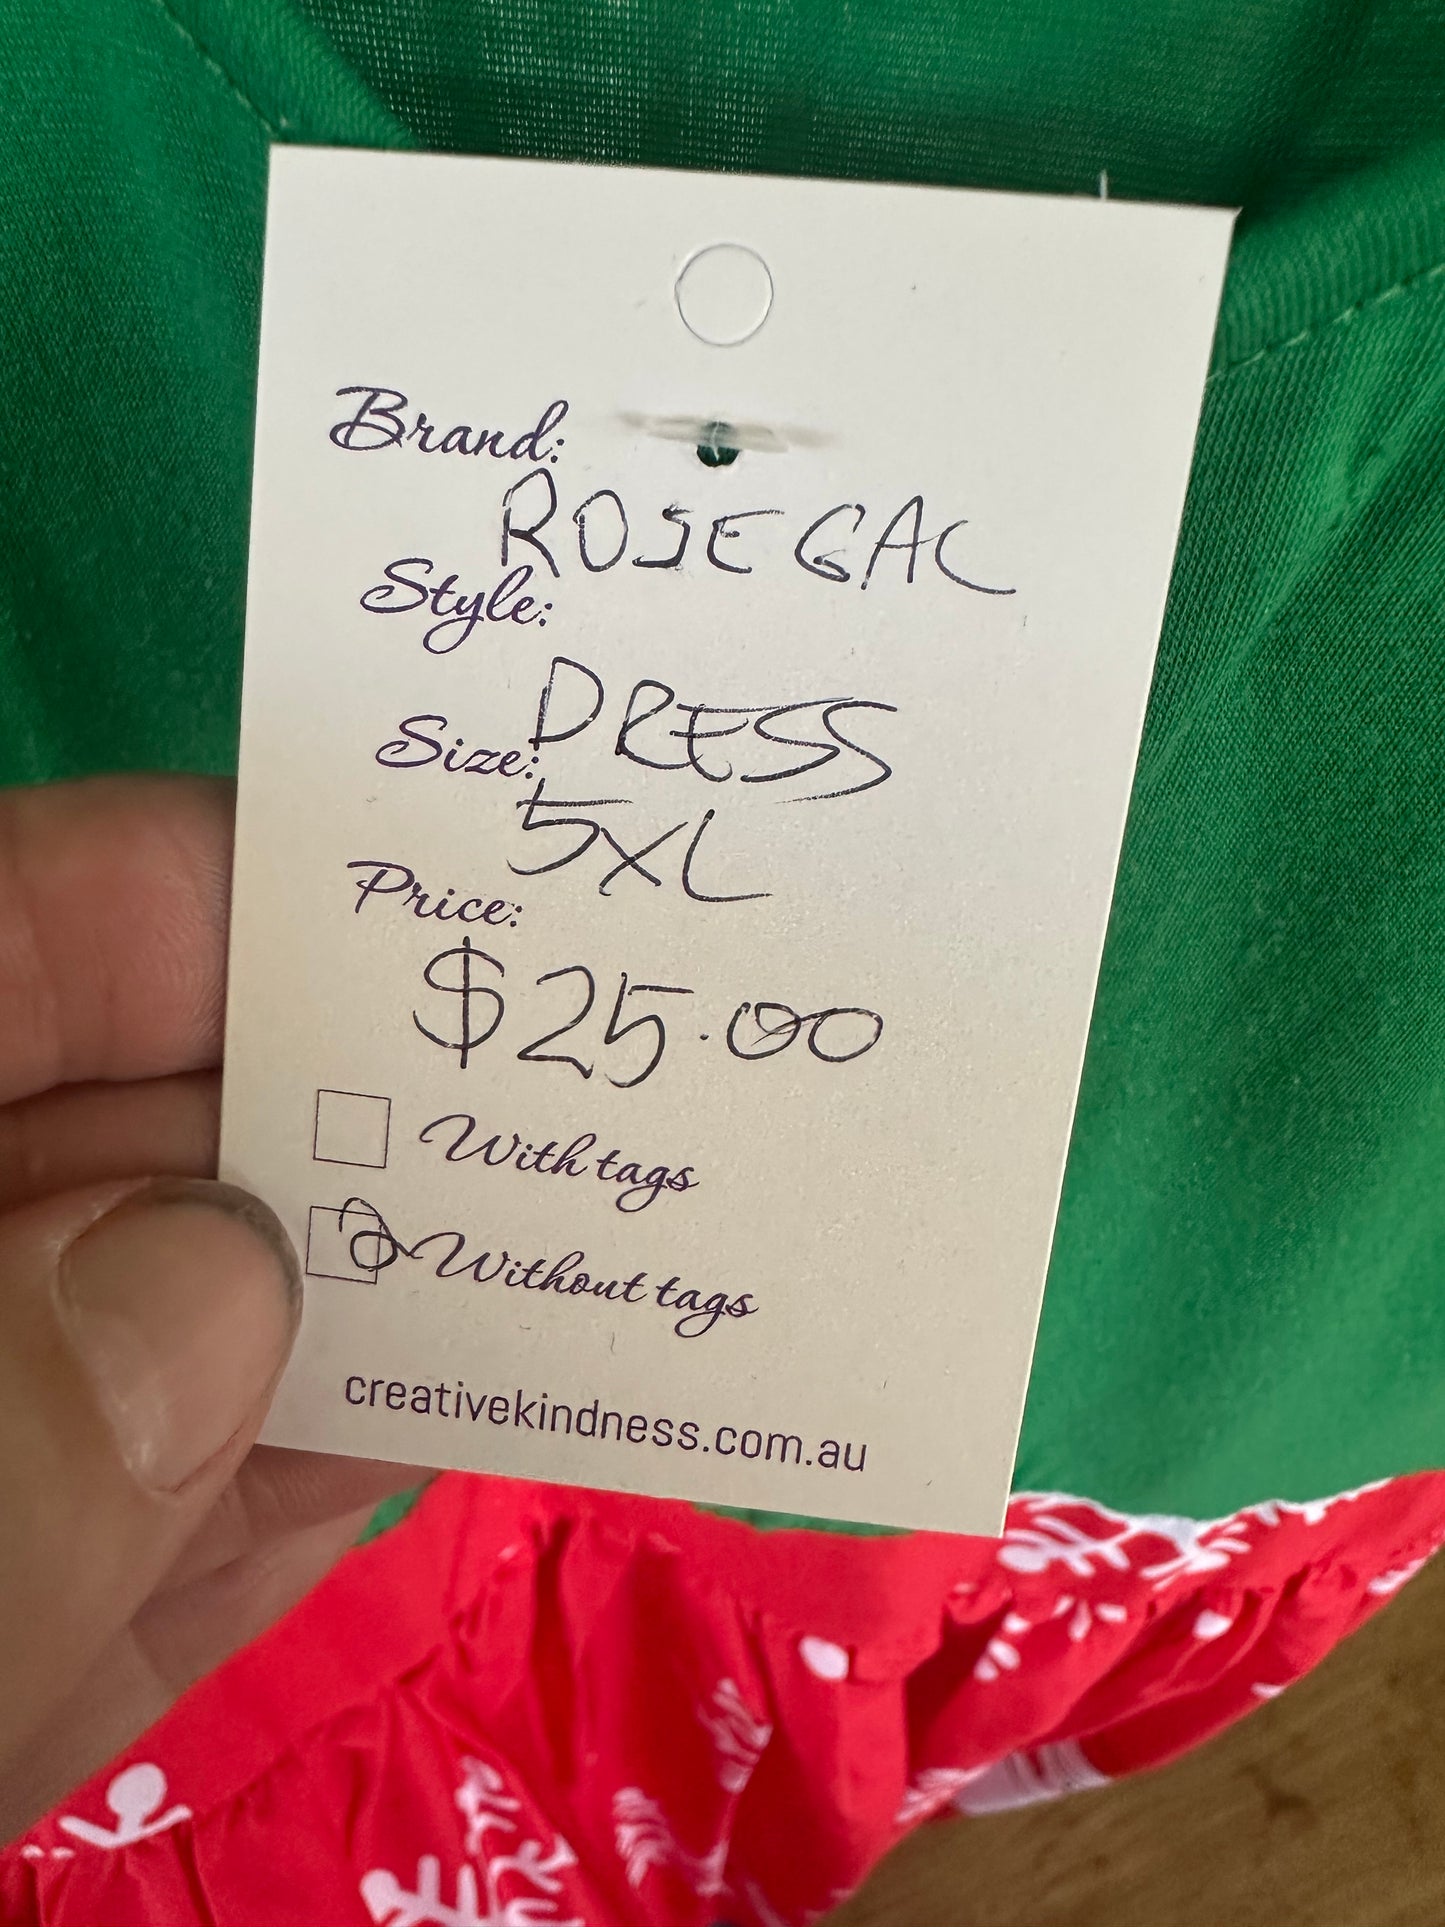 Brand:
ROSEGAL
Style:
DRESS
Size:
5XL
Price:
$25.00
With tags
Without tags
creativekindness.com.au